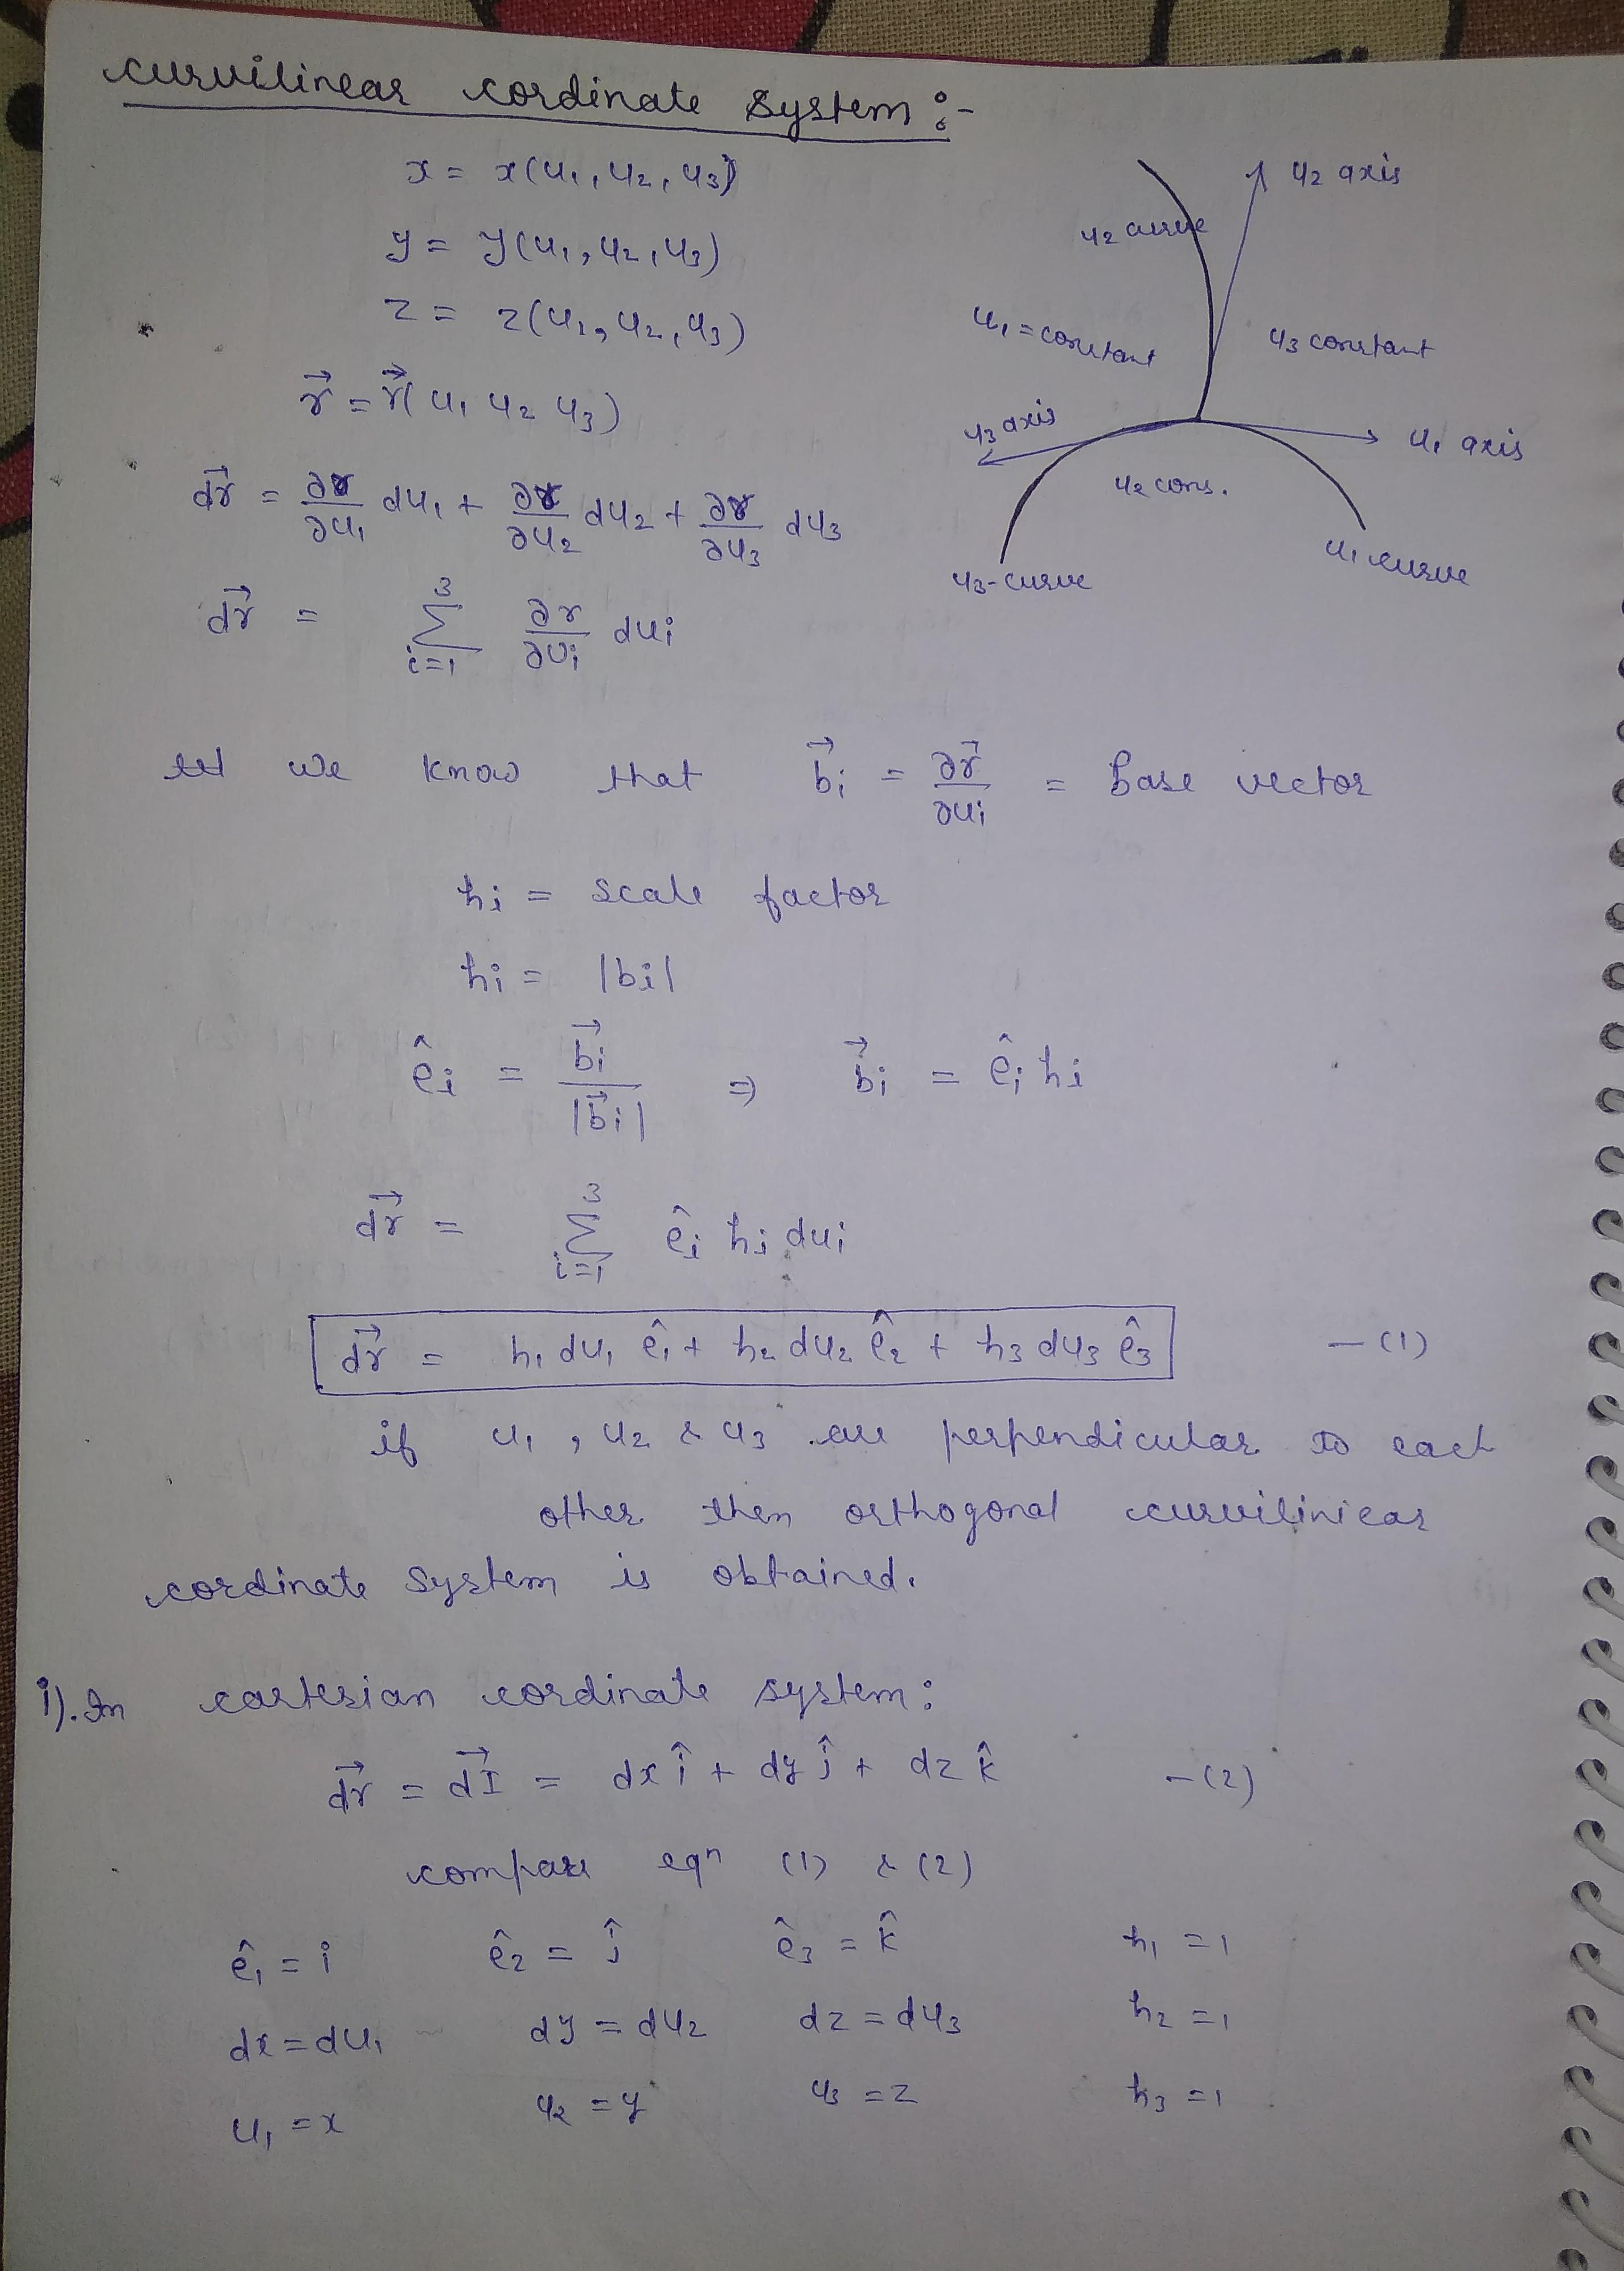 curvilinear cordinate system :-
x = x(u₁, u₂, u₃)
y = y(u₁, u₂, u₃)
z = z(u₁, u₂, u₃)
r⃗ = r⃗(u₁ u₂ u₃)
dr⃗ = ∂r/∂u₁ du₁ + ∂r/∂u₂ du₂ + ∂r/∂u₃ du₃
dr⃗ = Σ_{i=1}^{3} ∂r/∂uᵢ duᵢ
u₂ axis
u₂ curve
u₁ = constant
u₃ constant
u₃ axis
u₁ axis
u₂ cons.
u₃-curve
u₁ curve
we know that b⃗ᵢ = ∂r⃗/∂uᵢ = Base vector
hᵢ = scale factor
hᵢ = |bᵢ|
êᵢ = b⃗ᵢ/|b⃗ᵢ| ⇒ b⃗ᵢ = êᵢ hᵢ
dr⃗ = Σ_{i=1}^{3} êᵢ hᵢ duᵢ
dr⃗ = h₁ du₁ ê₁ + h₂ du₂ ê₂ + h₃ du₃ ê₃ — (1)
if u₁, u₂ & u₃ are perpendicular to each
other then orthogonal curviliniear
cordinate system is obtained.
i). In cartesian cordinate system :
dr⃗ = dI⃗ = dx î + dy ĵ + dz k̂ — (2)
compare eqⁿ (1) & (2)
ê₁ = i ê₂ = ĵ ê₃ = k̂ h₁ = 1
dx = du₁ dy = du₂ dz = du₃ h₂ = 1
u₁ = x u₂ = y u₃ = z h₃ = 1